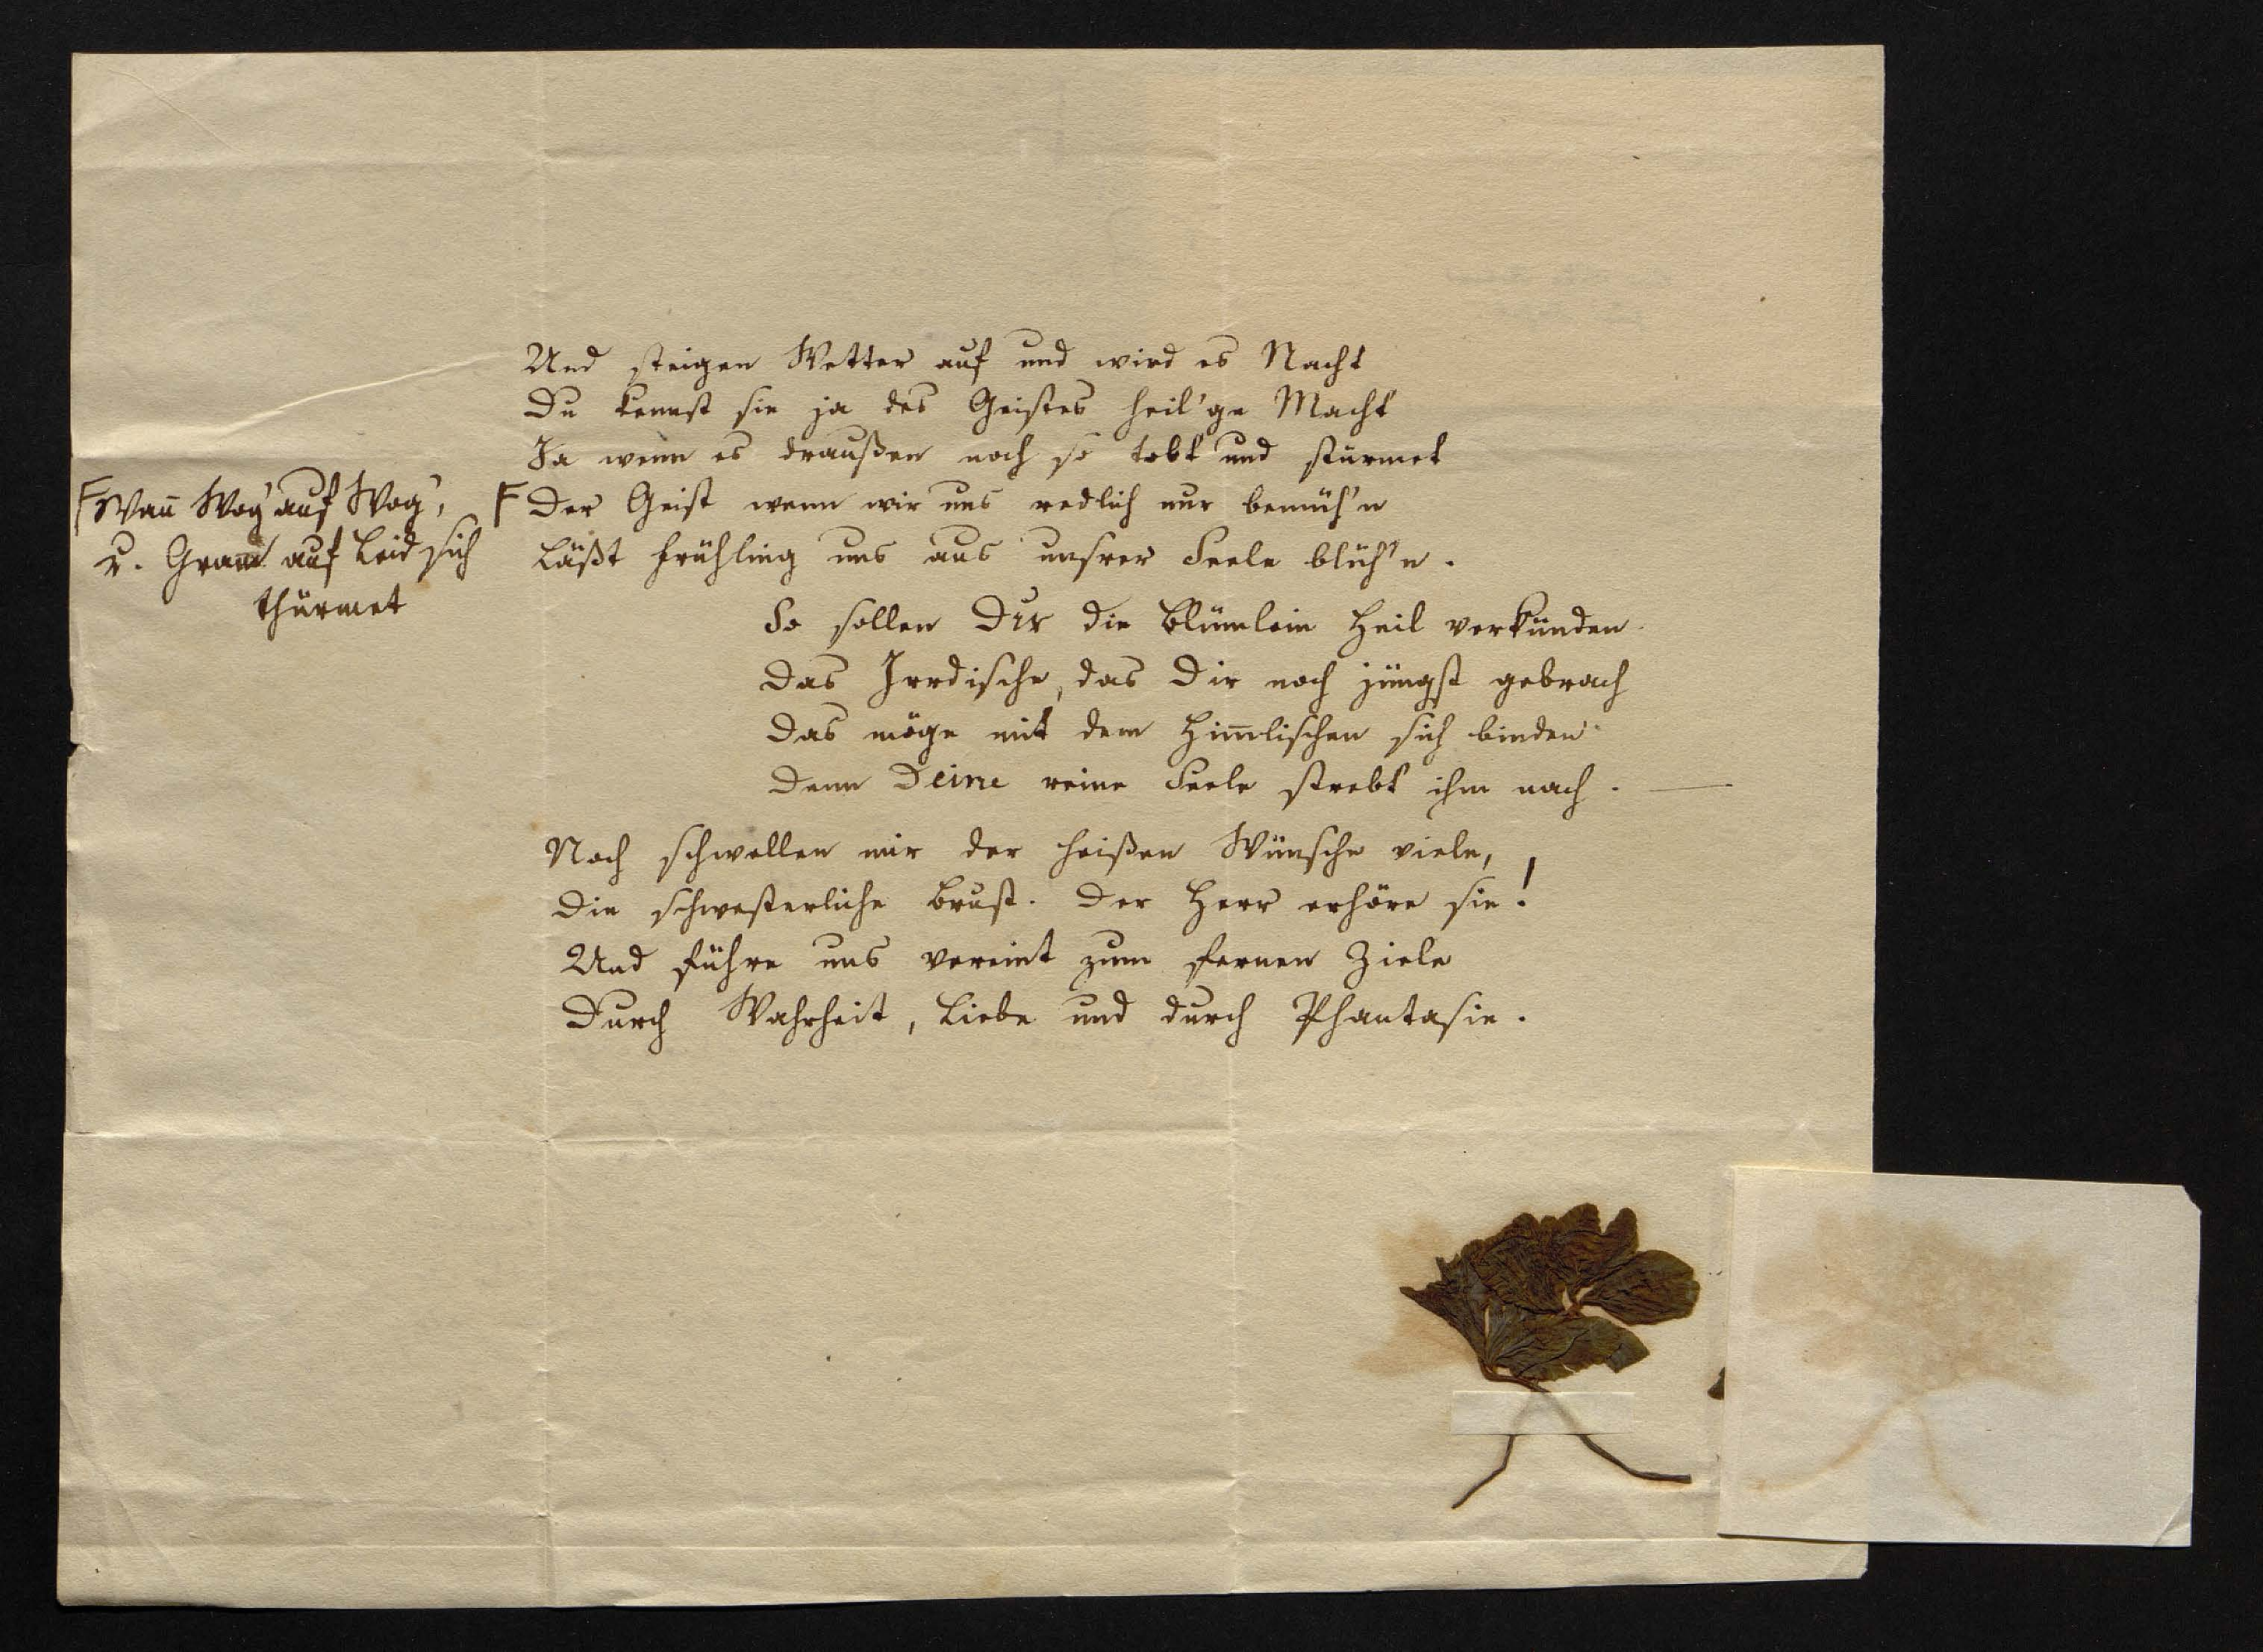 Und steigen Wetter auf und wird es Nacht
Du kennst sie ja des Geistes heil'ge Macht
Ja wenn es draußen noch so tobt und stürmet
F Wan̄ Wog' auf Wog',
u. Gram auf Leid sich
thürmet
F Der Geist wenn wir uns redlich nur bemüh'n
Läßt Frühling uns aus unsrer Seele blüh'n.
So sollen Dir die Blümlein Heil verkünden
Das Irrdische, das Dir noch jüngst gebrach
Das möge mit dem Him̄lischen sich binden
Denn Deine reine Seele strebt ihm nach. —
Noch schwellen mir der heißen Wünsche viele,
Die schwesterliche Brust. Der Herr erhöre sie!
Und führe uns vereint zum fernen Ziele
Durch Wahrheit, Liebe und durch Phantasie.